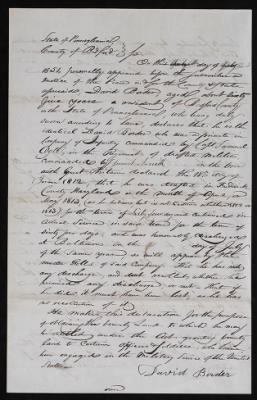 State of Pennsylvania
County of Bedford } ss
On this day of
1851 personally appeared before the
within and for the County & State
aforesaid, David Border aged
five years a resident of Bedford County
in the State of Pennsylvania who being duly
sworn according to Law, declares that he is the
identical David Border who was a private in
Company of Infantry commanded by Capt Samuel
in the Regiment of Militia
commanded by in the War
with Great Britain declared the 18th day of
June 1812 that he was drafted in
County Maryland in the Month of
May 1813 (as he believes but is not certain whether 1812 or
1813) for the term of Sixty days and continued in
Actual Service in said War for the term of
Sixty five days and was honorably discharged
at Baltimore on the day of July
of the same year as will appear by the
muster Rolls of said Company. He has not
any discharge, and does not recollect whether he
received any discharge or not. That if
he did it must have been lost, as he has
no recollection of it
He makes this declaration for the purpose
of obtaining the bounty Land to which he may
be entitled under the Act granting bounty
Land to Certain officers & Soldiers who have
been engaged in the Military Service of the United
States
David Border